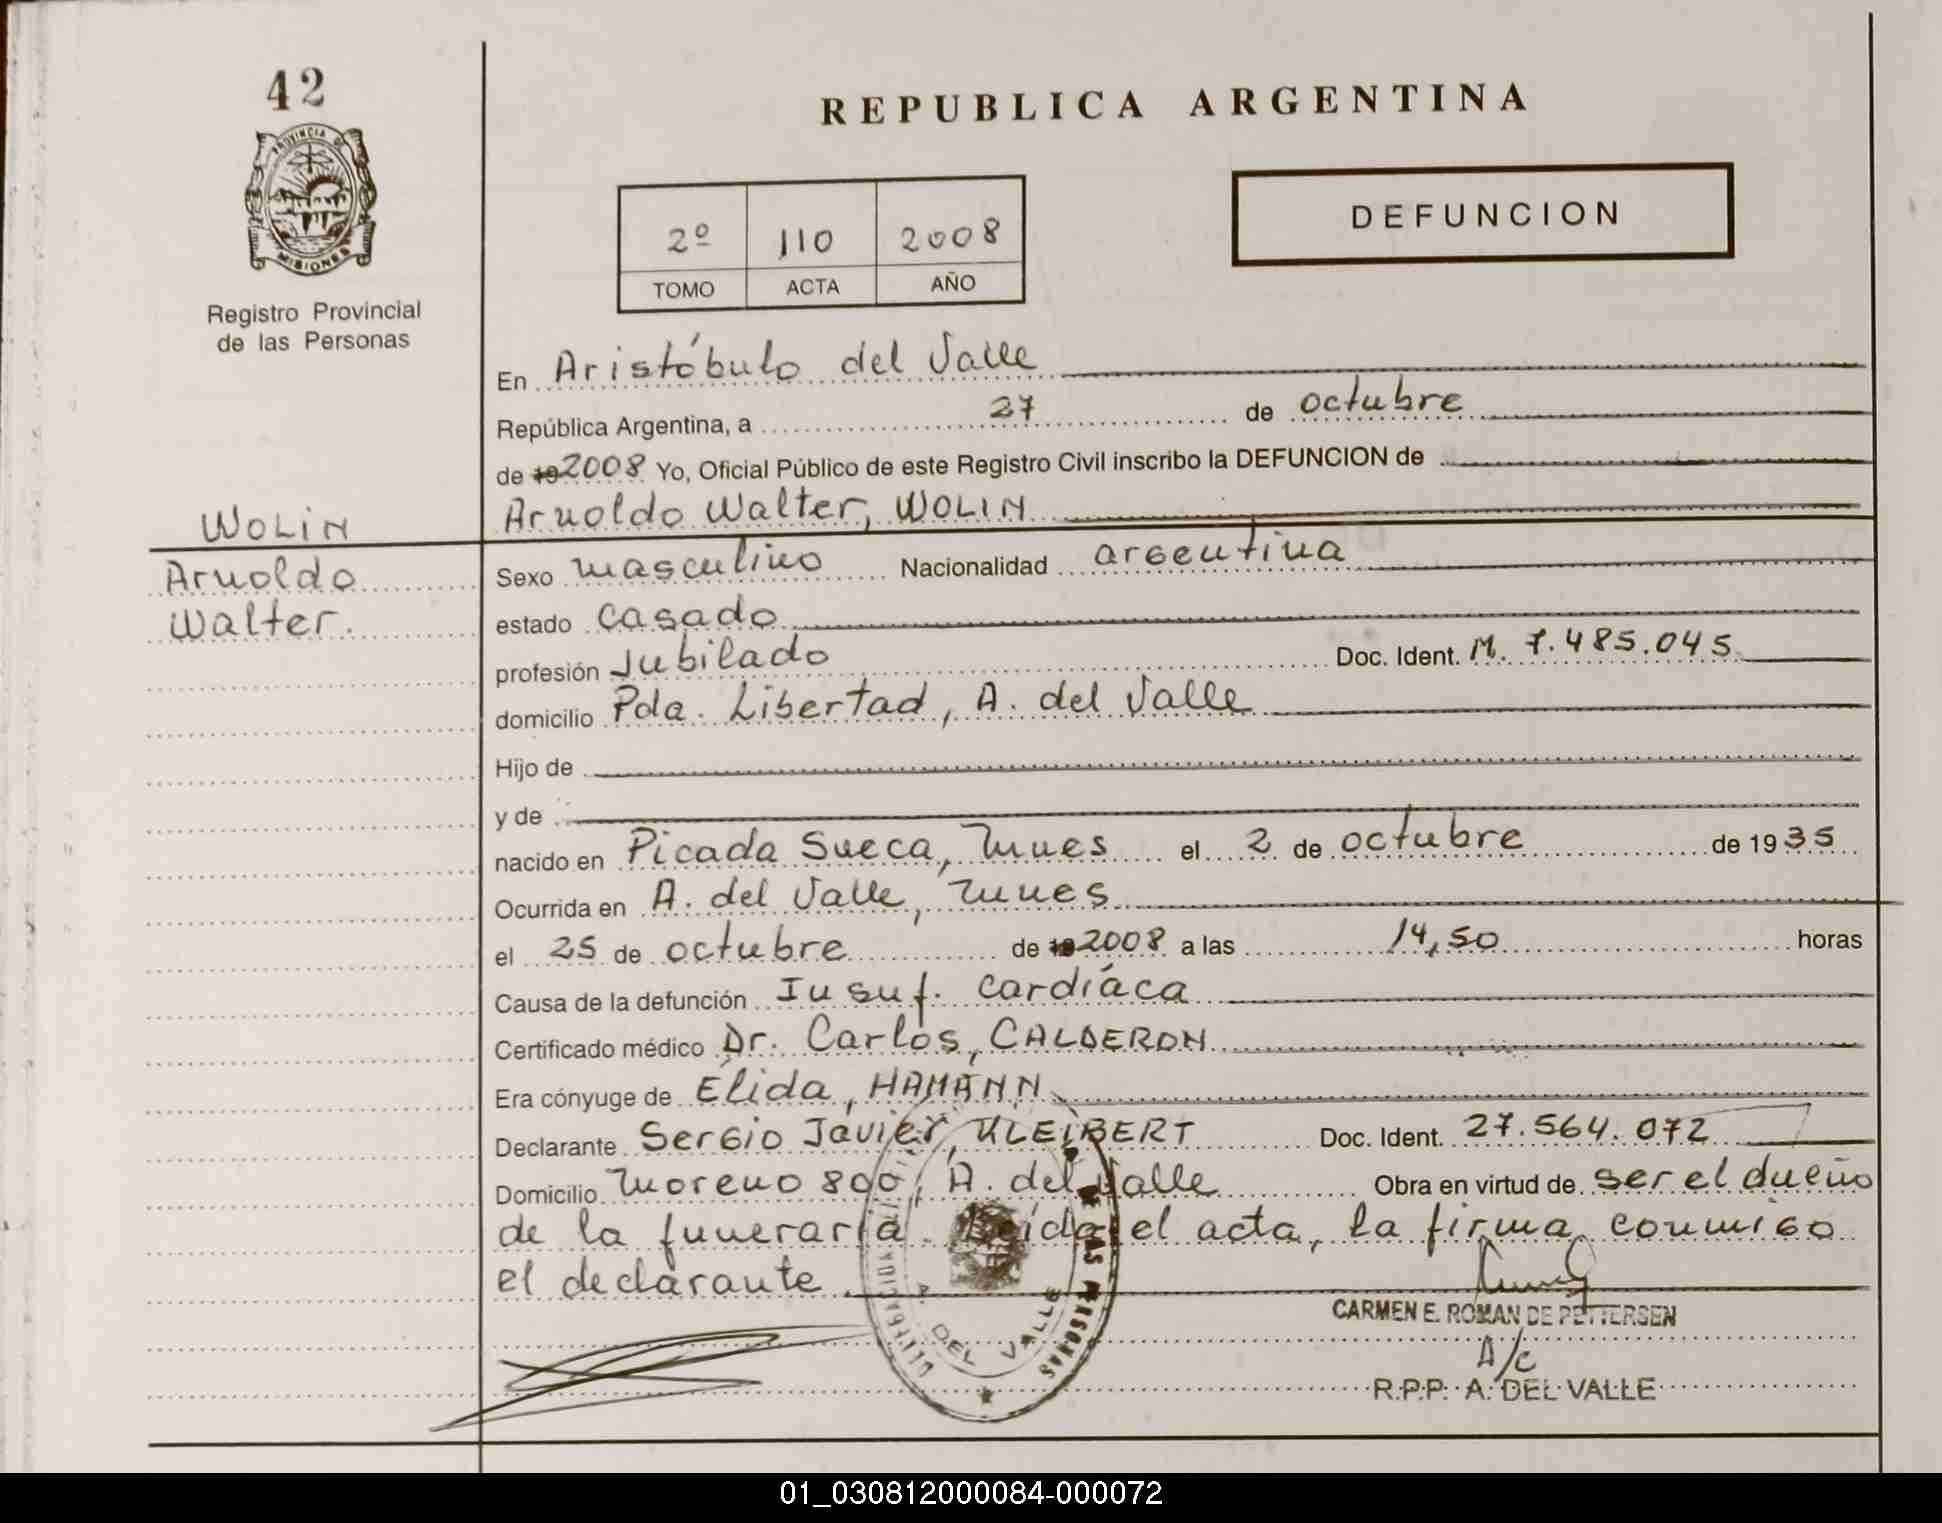 42
REPUBLICA ARGENTINA
PROVINCIA DE
MISIONES
DEFUNCION
2º 110 2008
TOMO ACTA AÑO
Registro Provincial
de las Personas
En Aristóbulo del Valle
República Argentina, a 27 de octubre
de 19 2008 Yo, Oficial Público de este Registro Civil inscribo la DEFUNCION de
Arnoldo Walter, WOLIN
WOLIN
Arnoldo
Walter.
Sexo masculino Nacionalidad argentina
estado casado
profesión Jubilado Doc. Ident. M. 7.485.045
domicilio Pda. Libertad, A. del Valle
Hijo de
y de
nacido en Picada Sueca, Mnes el 2 de octubre de 1935
Ocurrida en A. del Valle, Mnes
el 25 de octubre de 19 2008 a las 14,50 horas
Causa de la defunción Insuf. Cardíaca
Certificado médico Dr. Carlos, CALDERON
Era cónyuge de Elida, HAMANN
Declarante Sergio Javier, KLEIBERT Doc. Ident. 27.564.072
Domicilio Moreno 800, A. del Valle Obra en virtud de ser el dueño
de la funeraria. Leída el acta, la firma conmigo
el declarante
DE LAS PERSONAS
A. DEL VALLE
CARMEN E. ROMAN DE PETTERSEN
A/c
R.P.P. A. DEL VALLE
01_030812000084-000072